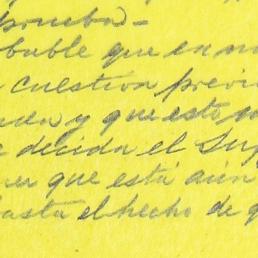 prueba-
bable que en
cuestion previa
y que esto
decida el
que está aún
hasta el hecho de